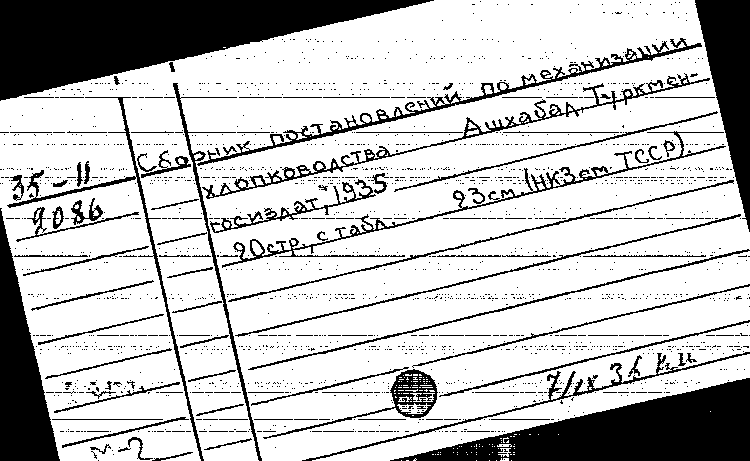 Сборник постановлений по механизации
35-11
хлопководства. Ашхабад, Туркмен-
2086
госиздат, 1935
20стр., с табл. 23см. (НКЗем ТССР).
7/IX 35
М-2